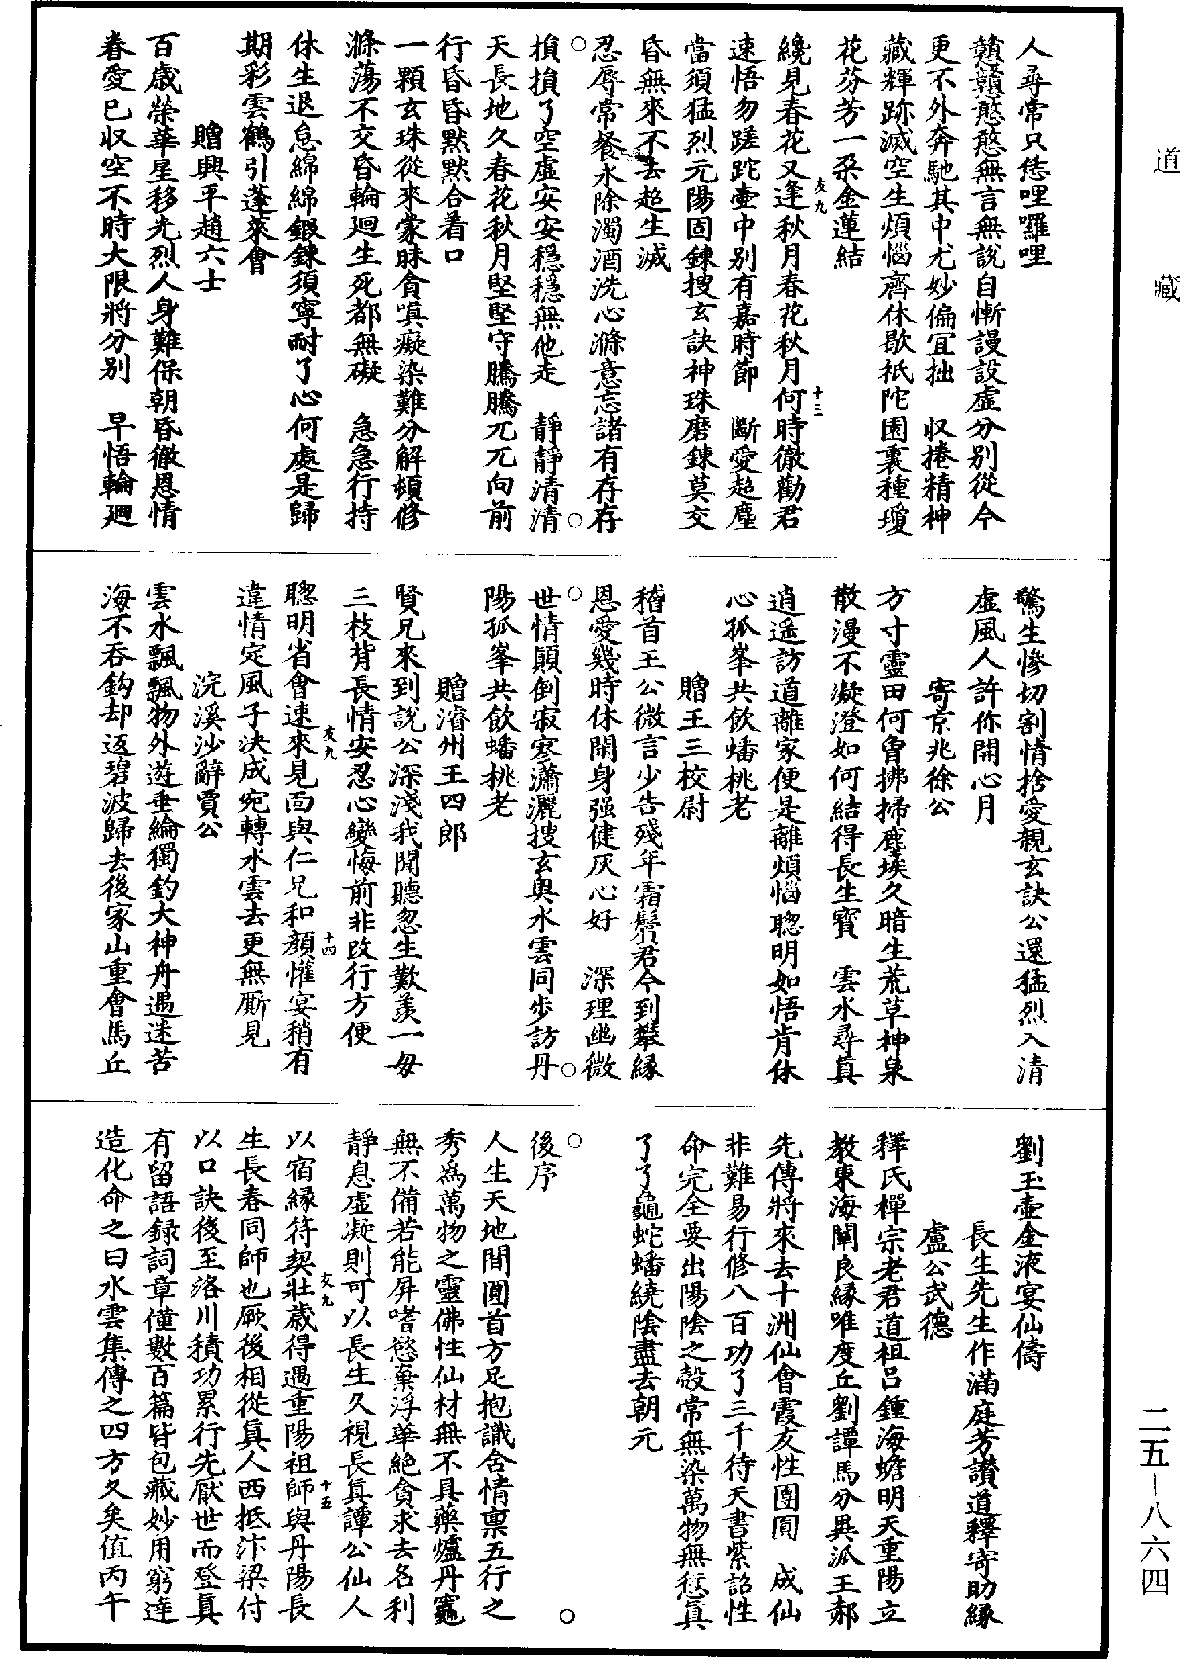 道藏
人尋常只恁哩囉哩
戇戇憨憨無言無說自慚謾設虛分别從今
更不外奔馳其中尤妙偏宜拙　収捲精神
藏輝跡滅空生煩惱齊休歇祇陀園裏種瓊
花芬芳一朶金蓮結
纔見春花又逢秋月春花秋月何時徹勸君
速悟勿蹉跎壷中别有嘉時節　斷愛超塵
當須猛烈元陽固鍊搜玄訣神珠磨鍊莫交
昏無來不去超生滅
忍辱常餐水除濁酒洗心滌意忘諸有存存
損損了空虛安安穩穩無他走　靜靜清清
天長地久春花秋月堅堅守騰騰兀兀向前
行昏昏默默合著口
一顆玄珠從來蒙昧貪嗔癡染難分解頓修
滌蕩不交昏輪廻生死都無礙　急急行持
休生退怠綿綿鍛鍊須寧耐了心何處是歸
期彩雲鶴引蓬萊會
贈興平趙六士
百歲榮華星移光烈人身難保朝昏徹恩情
眷愛已収空不時大限將分别　早悟輪廻
驚生慘切割情捨愛親玄訣公還猛烈入清
虛風人許你開心月
寄京兆徐公
方寸靈田何曾拂掃塵埃久暗生荒草神泉
散漫不凝澄如何結得長生寶　雲水尋真
逍遥訪道離家便是離煩惱聰明如悟肯休
心孤峯共飲蟠桃老
贈王三校尉
稽首王公微言少告殘年霜鬢君今到攀緣
恩愛幾時休閑身强健灰心好　深理幽微
世情顛倒寂寥瀟灑搜玄奥水雲同步訪丹
陽孤峯共飲蟠桃老
贈濬州王四郎
賢兄來到說公深淺我聞聽忽生歎羨一毋
三枝背長情安忍心變悔前非改行方便
聰明省會速來見面與仁兄和顏懽宴稍有
違情定風子决成宛轉水雲去更無厮見
浣溪沙辭賈公
雲水飄飄物外遊垂綸獨釣大神舟遇迷苦
海不吞鈎却返碧波歸去後家山重會馬丘
劉玉壷金液宴仙儔
長生先生作滿庭芳讃道釋寄助緣
盧公武德
釋氏禪宗老君道祖吕鍾海蟾明天重陽立
教東海闡良緣唯度丘劉譚馬分異派王郝
先傳將來去十洲仙會霞友性團圓　成仙
非難易行修八百功了三千待天書紫詔性
命完全要出陽陰之殼常無染萬物無愆真
了了龜蛇蟠繞陰盡去朝元
後序
人生天地間圓首方足抱識含情禀五行之
秀為萬物之靈佛性仙材無不具藥爐丹竈
無不備若能屏嗜慾棄浮華絶貪求去名利
靜息虛凝則可以長生久視長真譚公仙人
以宿緣符契壯歲得遇重陽祖師與丹陽長
生長春同師也厥後相從真人西抵汴梁付
以口訣後至洛川積功累行先厭世而登真
有留語録詞章僅數百篇皆包藏妙用窮達
造化命之曰水雲集傳之四方久矣值丙午
亥九
十三
亥九
十四
亥九
十五
二五－八六四